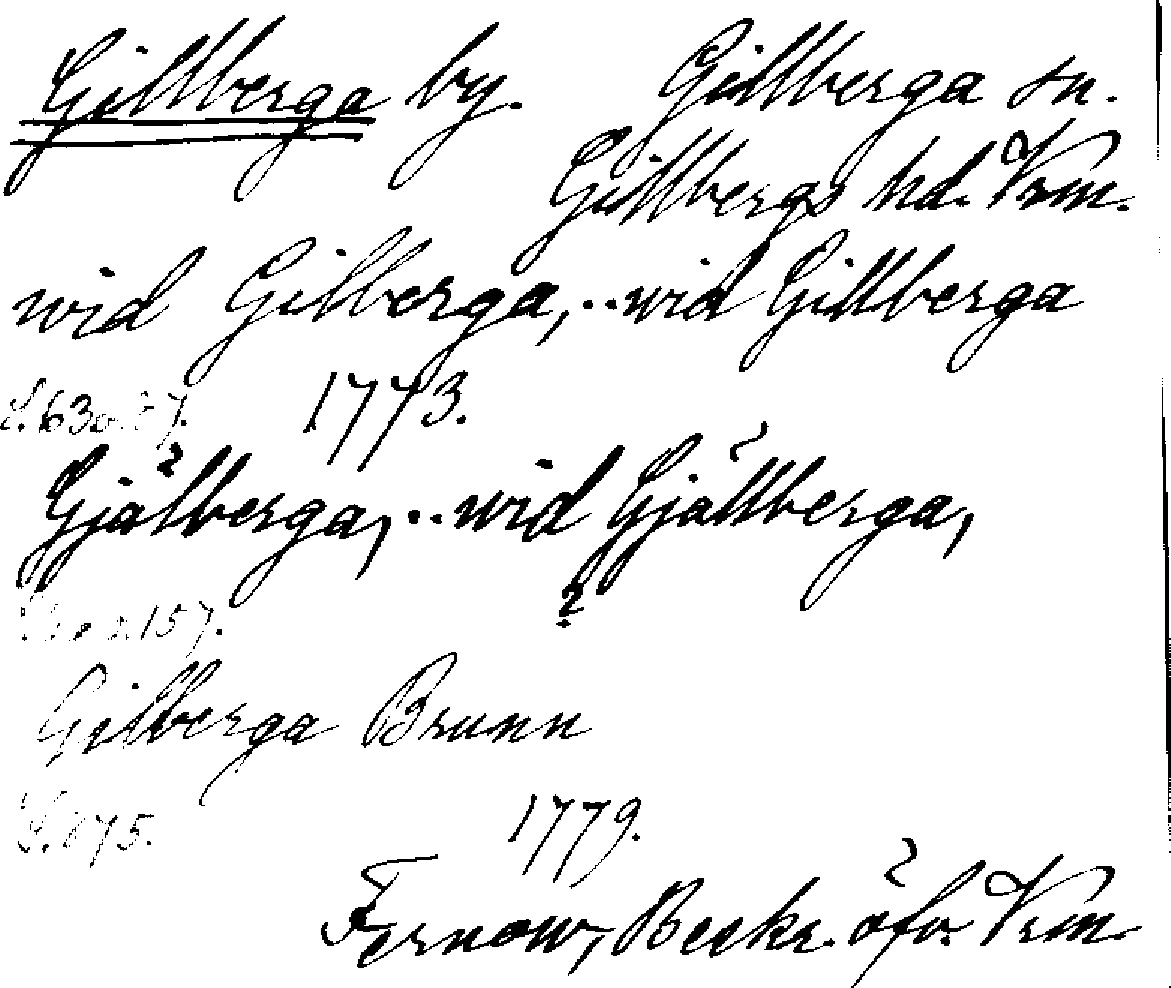 Gillberga by. Gillberga sn.
Gillbergs hd. Vrm.
wid Gilberga, .. wid Gillberga
S. 63 1773.
Gjälberga, .. wid Gjällberga,
157. ?
Gilberga Brunn
S. 1779.
Fernow, Beskr. öfv. Vrm.